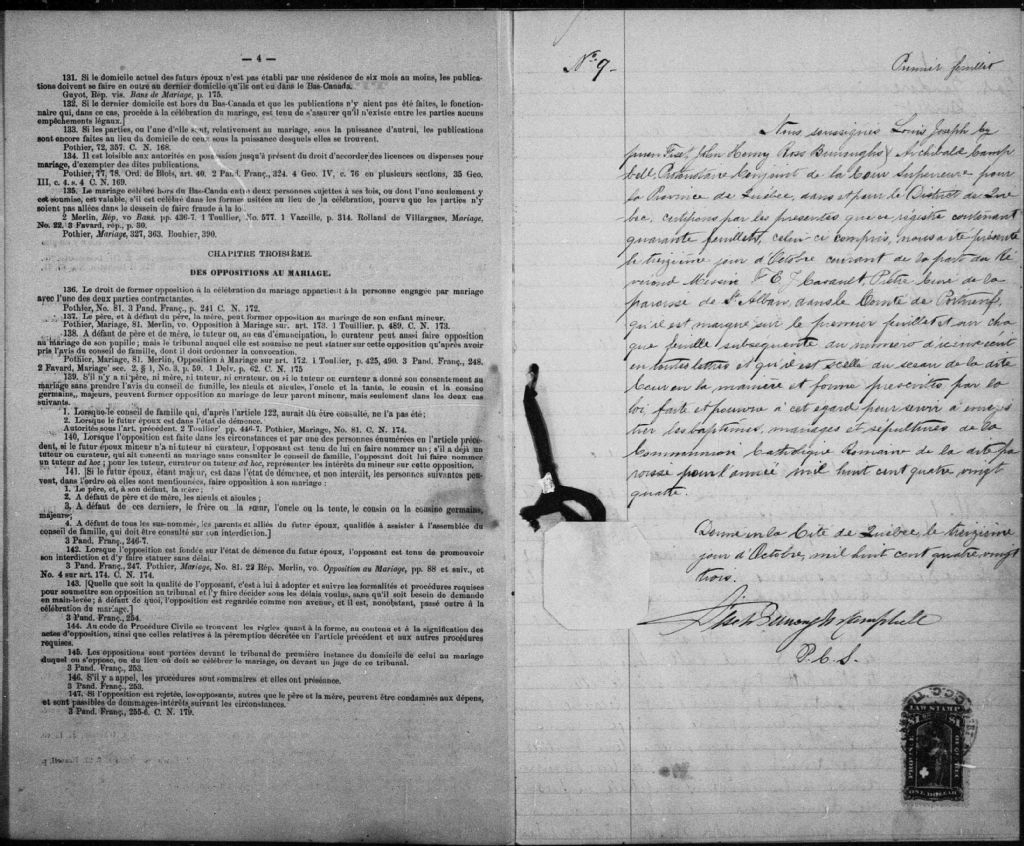 — 4 —
131. Si le domicile actuel des futurs époux n'est pas établi par une résidence de six mois au moins, les publica-
tions doivent se faire en outre au dernier domicile qu'ils ont eu dans le Bas-Canada.
Guyot, Rép. vis. Bans de Mariage, p. 175.
132. Si le dernier domicile est hors du Bas-Canada et que les publications n'y aient pas été faites, le fonction-
naire qui, dans ce cas, procède à la célébration du mariage, est tenu de s'assurer qu'il n'existe entre les parties aucuns
empêchements légaux.]
133. Si les parties, ou l'une d'elle sont, relativement au mariage, sous la puissance d'autrui, les publications
sont encore faites au lieu du domicile de ceux sous la puissance desquels elles se trouvent.
Pothier, 72, 357. C. N. 168.
134. Il est loisible aux autorités en possession jusqu'à présent du droit d'accorder des licences ou dispenses pour
mariage, d'exempter des dites publications.
Pothier, 77, 78. Ord. de Blois, art. 40. 2 Pand. Franç., 324. 4 Geo. IV, c. 76 en plusieurs sections, 35 Geo.
III, c. 4. s. 4 C. N. 169.
135. Le mariage célébré hors du Bas-Canda entre deux personnes sujettes à ses lois, ou dont l'une seulement y
est soumise, est valable, s'il est célébré dans les formes usitées au lieu de la célébration, pourvu que les parties n'y
soient pas allées dans le dessein de faire fraude à la loi.
2 Merlin, Rép, vo Bans. pp. 436-7. 1 Toullier, No. 577. 1 Vazeille, p. 314. Rolland de Villargues, Mariage,
No. 22. 3 Favard, rép., p. 30.
Pothier, Mariage, 327, 363. Bouhier, 390.
CHAPITRE TROISIÈME.
DES OPPOSITIONS AU MARIAGE.
136. Le droit de former opposition à la célébration du mariage appartient à la personne engagée par mariage
avec l'une des deux parties contractantes.
Pothier, No. 81. 3 Pand. Franç., p. 241 C. N. 172.
137. Le père, et à défaut du père, la mère, peut former opposition au mariage de son enfant mineur.
Pothier, Mariage, 81. Merlin, vo. Opposition à Mariage sur. art. 173. 1 Touillier. p. 489. C. N. 173.
138. A défaut de père et de mère, le tuteur ou, au cas d'émancipation, le curateur peut aussi faire opposition
au mariage de son pupille; mais le tribunal auquel elle est soumise ne peut statuer sur cette opposition qu'après avoir
pris l'avis du conseil de famille, dont il doit ordonner la convocation.
Pothier, Mariage, 81. Merlin, Opposition à Mariage sur art. 172. 1 Toullier, p. 425, 490. 3 Pand. Franç., 248.
2 Favard, Mariage' sec. 2. § 1, No. 3, p. 59. 1 Delv. p. 62. C. N. 175
139. S'il n'y a ni père, ni mère, ni tuteur, ni curateur, ou si le tuteur ou curateur a donné son consentement au
mariage sans prendre l'avis du conseil de famille, les aïeuls et aïeules, l'oncle et la tante, le cousin et la cousine
germains, majeurs, peuvent former opposition au mariage de leur parent mineur, mais seulement dans les deux cas
suivants.
1. Lorsque le conseil de famille qui, d'après l'article 122, aurait dû être consulté, ne l'a pas été;
2. Lorsque le futur époux est dans l'état de démence.
Autorités sous l'art. précédent. 2 Toullier pp. 446-7. Pothier, Mariage, No. 81. C. N. 174.
140. Lorsque l'opposition est faite dans les circonstances et par une des personnes énumérées en l'article précé-
dent, si le futur époux mineur n'a ni tuteur ni curateur, l'opposant est tenu de lui en faire nommer un; s'il a déjà un
tuteur ou curateur, qui ait consenti au mariage sans consulter le conseil de famille, l'opposant doit lui faire nommer
un tuteur ad hoc; pour les tuteur, curateur ou tuteur ad hoc, représenter les intérêts du mineur sur cette opposition.
141. [Si le futur époux, étant majeur, est dans l'état de démence, et non interdit, les personnes suivantes peu-
vent, dans l'ordre où elles sont mentionnées, faire opposition à son mariage:
1. Le père, et, à son défaut, la mère;
2. A défaut de père et de mère, les aïeuls et aïeules;
3. A défaut de ces derniers, le frère ou la sœur, l'oncle ou la tente, le cousin ou la cousine germains,
majeurs;
4. A défaut de tous les sus-nommés, les parents et alliés du futur époux, qualifiés à assister à l'assemblée du
conseil de famille, qui doit être consulté sur son interdiction.]
3 Pand. Franç., 246-7.
142. Lorsque l'opposition est fondée sur l'état de démence du futur époux, l'opposant est tenu de promouvoir
son interdiction et d'y faire statuer sans délai.
3 Pand. Franç., 247. Pothier, Mariage, No. 81. 22 Rép. Merlin, vo. Opposition au Mariage, pp. 88 et suiv., et
No. 4 sur art. 174. C. N. 174.
143. [Quelle que soit la qualité de l'opposant, c'est à lui à adopter et suivre les formalités et procédures requises
pour soumettre son opposition au tribunal et l'y faire décider sous les délais voulus, sans qu'il soit besoin de demande
en main-levée; à défaut de quoi, l'opposition est regardée comme non avenue, et il est, nonobstant, passé outre à la
célébration du mariage.]
3 Pand. Franç., 254.
144. Au code de Procédure Civile se trouvent les règles quant à la forme, au contenu et à la signification des
actes d'opposition, ainsi que celles relatives à la péremption décrétée en l'article précédent et aux autres procédures
requises.
145. Les oppositions sont portées devant le tribunal de première instance du domicile de celui au mariage
duquel on s'oppose, ou du lieu où doit se célébrer le mariage, ou devant un juge de ce tribunal.
3 Pand. Franç., 253.
146. S'il y a appel, les procédures sont sommaires et elles ont préséance.
3 Pand. Franç., 253.
147. Si l'opposition est rejetée, les opposants, autres que le père et la mère, peuvent être condamnés aux dépens,
et sont passibles de dommages-intérêts suivant les circonstances.
3 Pand. Franç., 255-6. C. N. 179.
No. 9.
Premier feuillet
Nous soussignés Louis Joseph Cy
prien Fiset, John Henry Ross Burroughs & Archibald Camp
bell, Protonotaire Conjoint de la Cour Supérieure pour
la Province de Québec, dans et pour le District de Qué
bec, certifions par les présentes que ce registre contenant
quarante feuillets, celui ci compris, nous a été présenté
le treizième jour d'Octobre courant de la part du Ré
vérend Messire F. E. J. Casault, Ptetre Curé de la
paroisse de St Alban, dans le Comté de Portneuf,
qu'il est marqué sur le premier feuillet et sur cha
que feuille subsequente du numéro d'icimo écrit
en toutes lettres et qu'il est scellé du sceau de la dite
Cour en la manière et forme prescrites par la
loi faite et pourvue à cet égard pour servir à enregis
trer les baptêmes, mariages et sépultures de la
Communion Catholique Romaine de la dite pa
roisse pour l'année mil huit cent quatre vingt
quatre.
Donné en la Cité de Québec, le treizième
jour d'Octobre, mil huit cent quatre vingt
trois.
Fiset Burroughs & Campbell
P. C. S.
LAW STAMP
$1 $1
PROVINCE OF QUEBEC
ONE DOLLAR